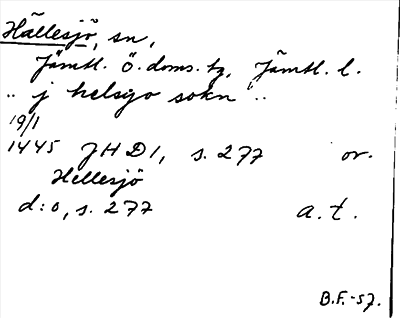 Hällesjö, sn,
Jämtl. Ö. doms. tg, Jämtl. l.
.. j helsyo sokn ..
19/1
1445 JHD1, s. 277 or.
Hellesjö
d:o, s. 277 a.t.
B.F.-57.